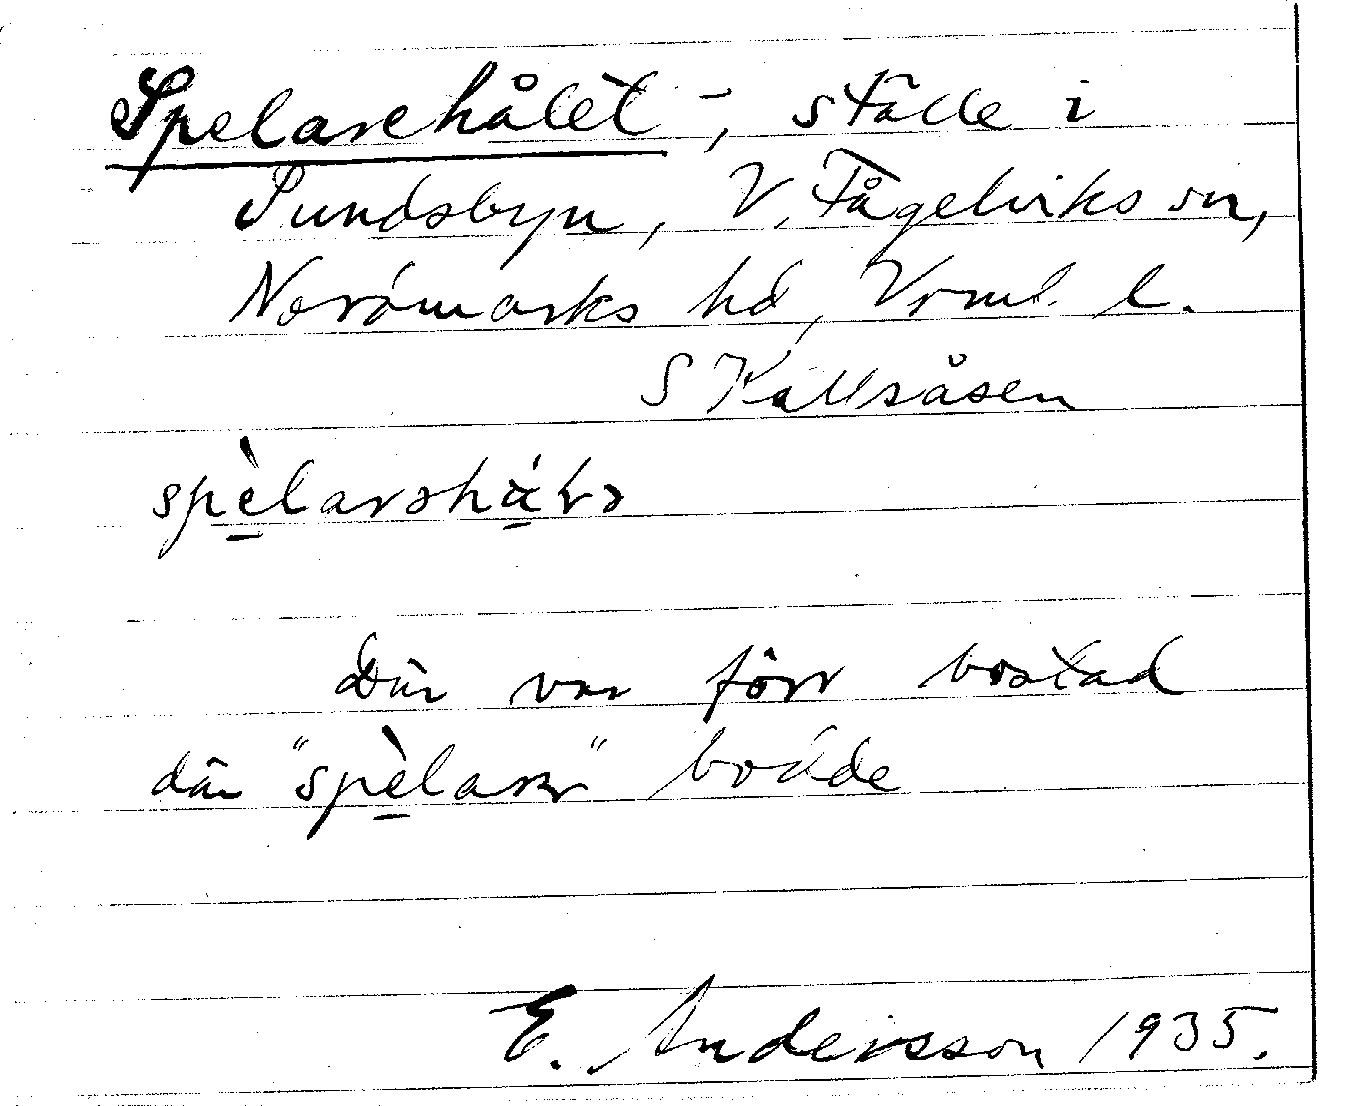 Spelarehålet -, ställe i
Sundsbyn, V. Fågelviks sn,
Nordmarks hd, Vrml. l.
S Källsåsen
spèlarəhȧ̀ɫə
Där var förr bostad
där "spèlarə" bodde
E. Andersson 1935.